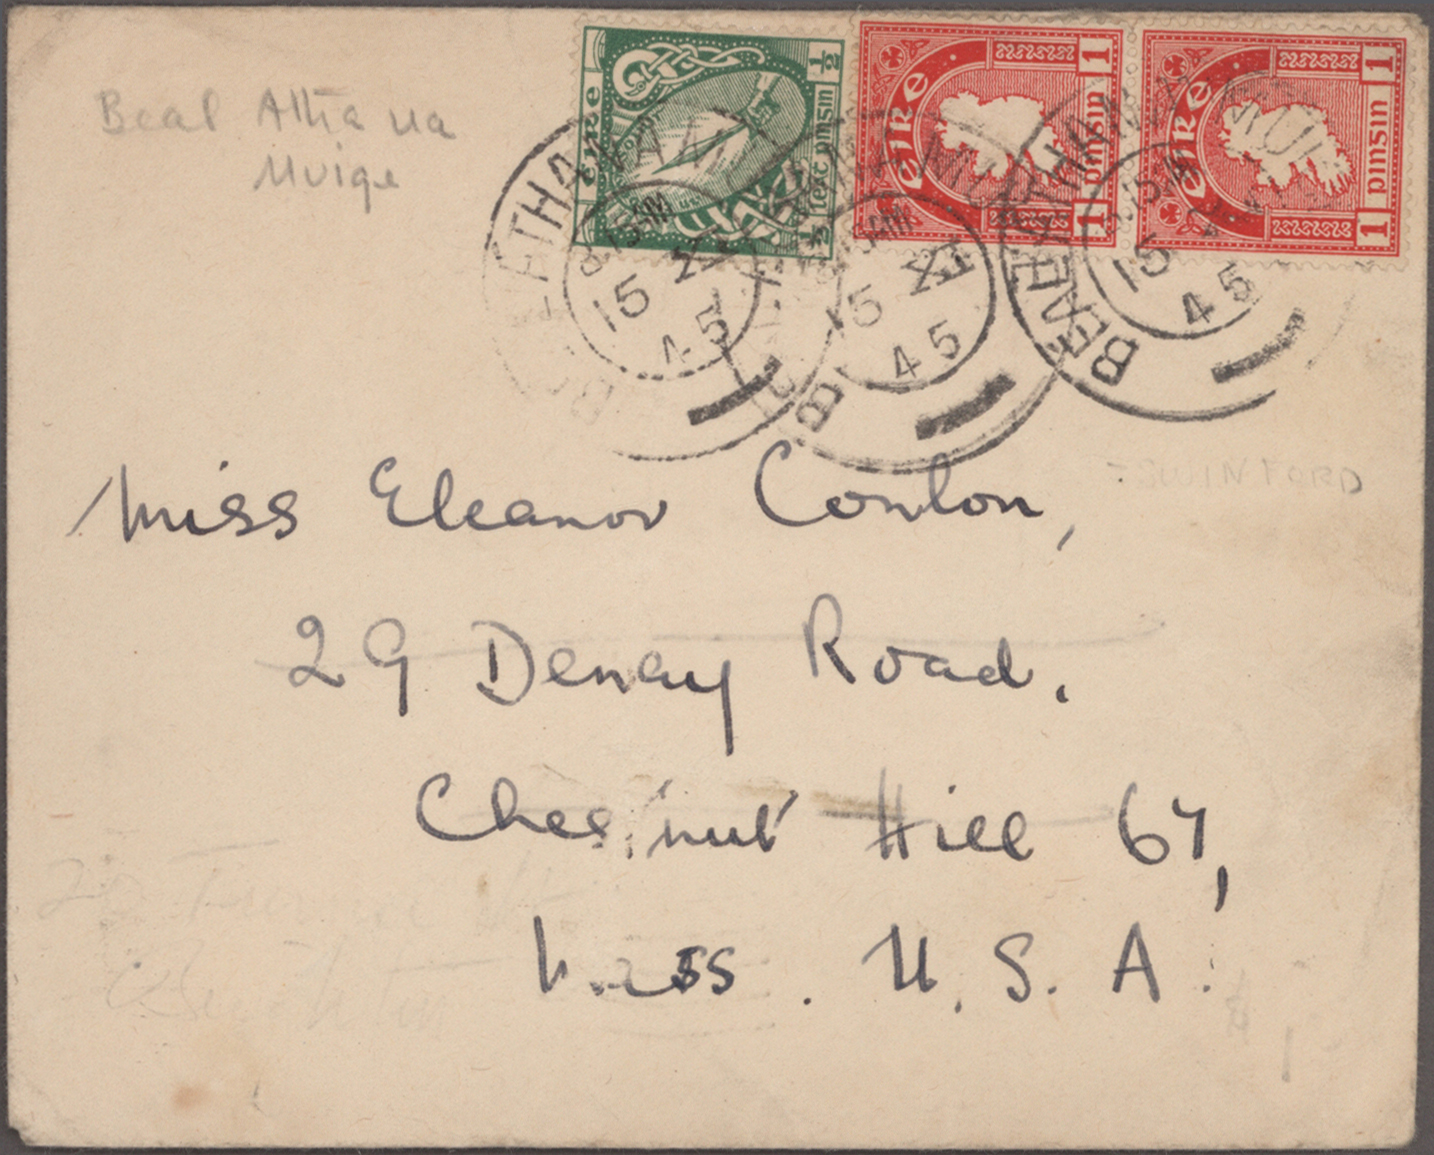 Beal Atha na
Muige
éire
½
leat pinsin
½
éire
1
pinsin
1
éire
1
pinsin
1
ATHANAM
8.15AM
15 XI
45
15 XI
45
BEALATHANAMUI
15
45
- SWINFORD
Miss Eleanor Conlon,
29 Denny Road.
Chestnut Hill 67,
Mass. U.S.A.